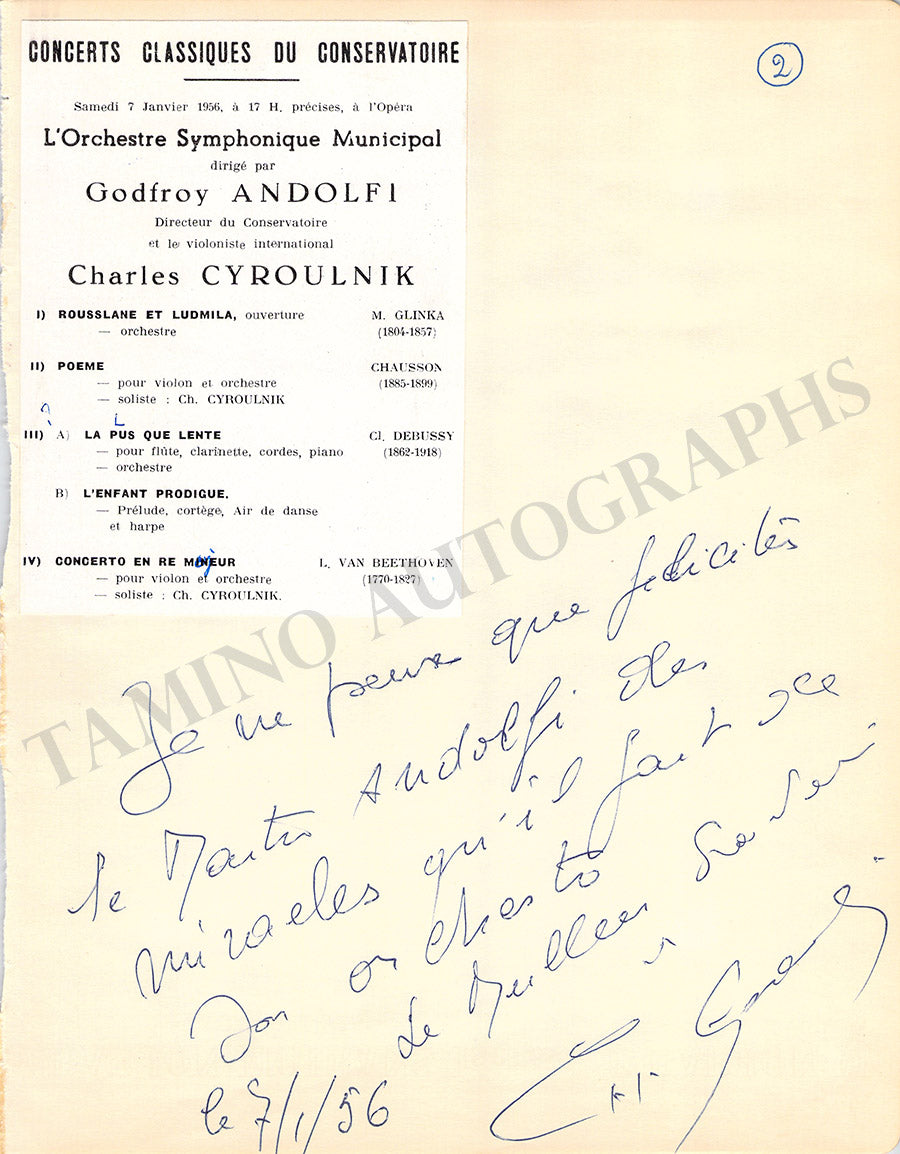 CONCERTS CLASSIQUES DU CONSERVATOIRE
2
Samedi 7 Janvier 1956, à 17 H. précises, à l'Opéra
L'Orchestre Symphonique Municipal
dirigé par
Godfroy ANDOLFI
Directeur du Conservatoire
et le violoniste international
Charles CYROULNIK
I) ROUSSLANE ET LUDMILA, ouverture M. GLINKA
— orchestre (1804-1857)
II) POEME CHAUSSON
— pour violon et orchestre (1885-1899)
— soliste : Ch. CYROULNIK
? L
III) A) LA PUS QUE LENTE Cl. DEBUSSY
— pour flûte, clarinette, cordes, piano (1862-1918)
— orchestre
B) L'ENFANT PRODIGUE.
— Prélude, cortège, Air de danse
et harpe
IV) CONCERTO EN RE MINEUR L. VAN BEETHOVEN
— pour violon et orchestre (1770-1827)
— soliste : Ch. CYROULNIK.
TAMINO AUTOGRAPHS
Je ne peux que félicités
le Maitre Andolfi des
miracles qu'il fait
son orchestre
Le Meilleur
le 7/1/56